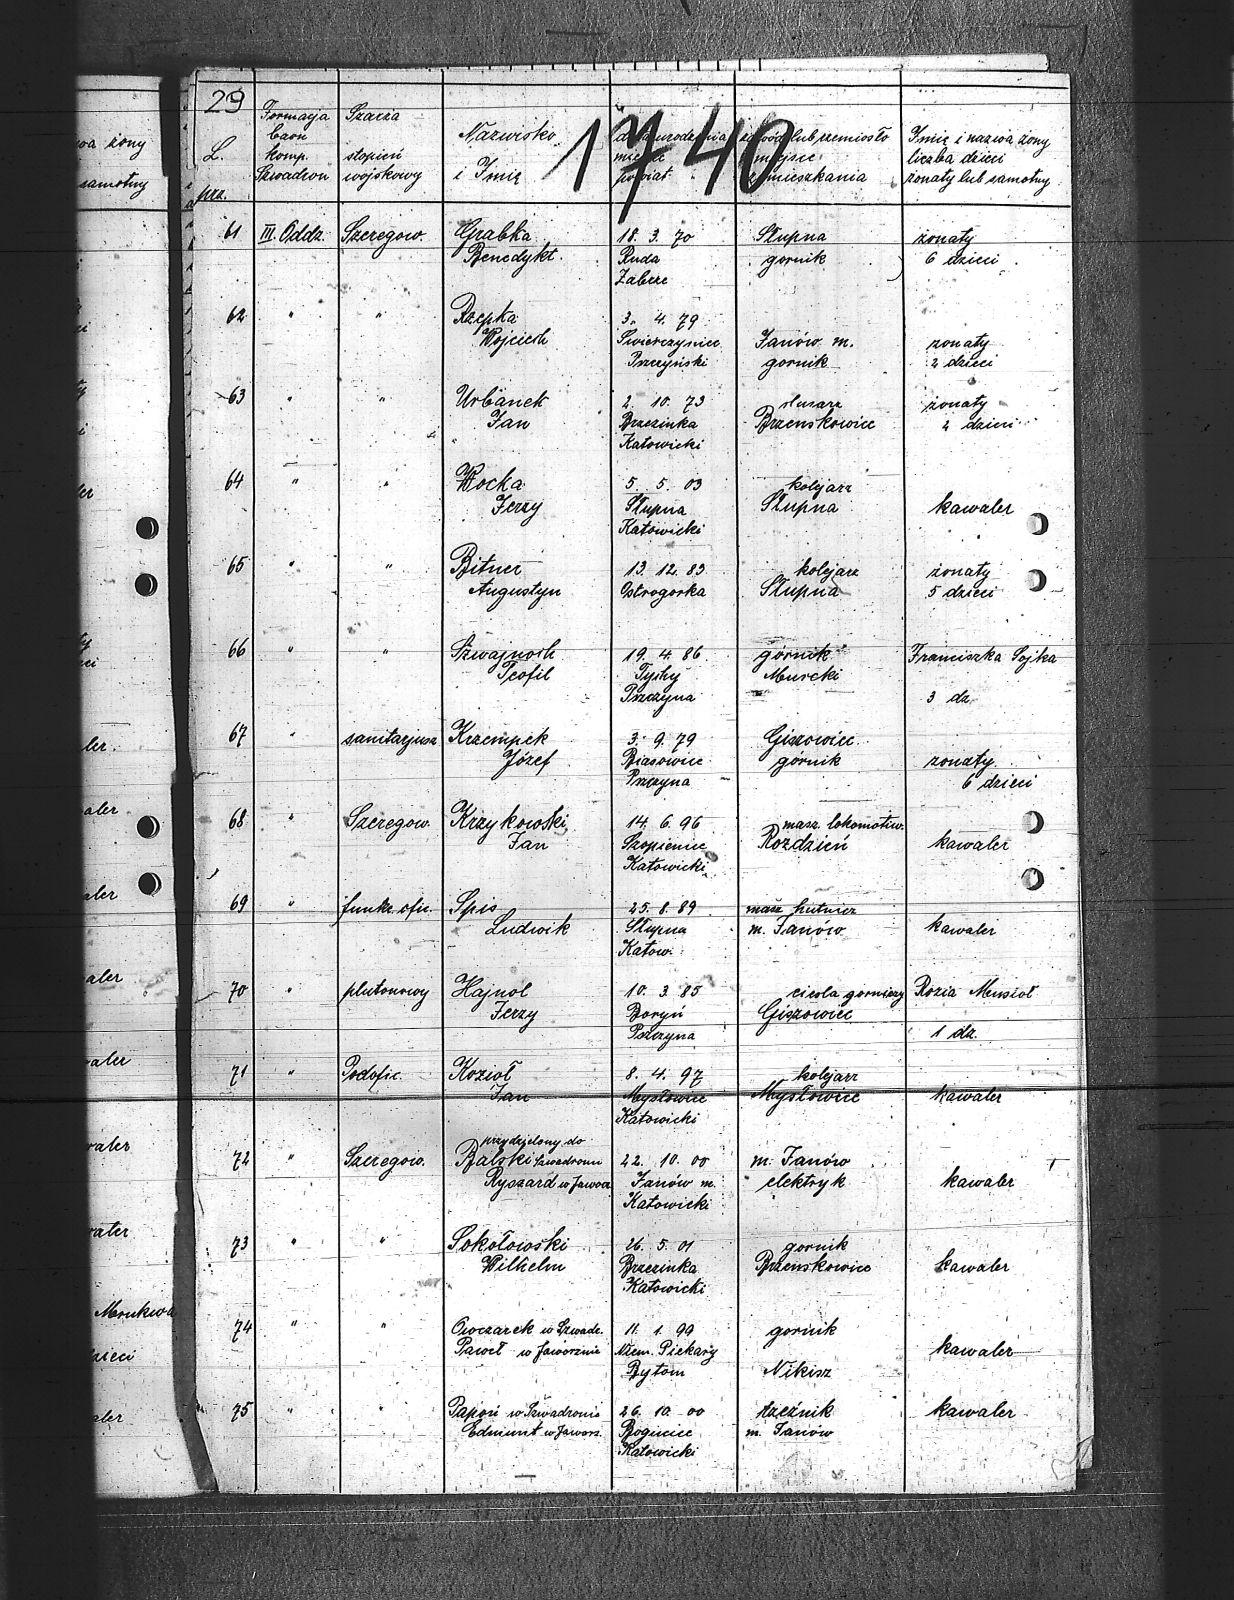 29
1740
L. prz.
Formacja baon komp. Szwadron
Szarża stopień wojskowy
Nazwisko i Imię
data urodzenia miejsce powiat
zawód lub rzemiosło miejsce zamieszkania
Imię i nazwa żony liczba dzieci żonaty lub samotny
61 III. Oddz. Szeregow. Grabka 18. 3. 70 Słupna żonaty
Benedykt. Ruda gornik 6 dzieci
Zabrze
62 " " Rzepka 3. 4. 79
Wojciech Swierczyniec Janów m. zonaty
Pszczyński gornik 2 dzieci
63 " " Urbanek 2. 10. 73 slusarz zonaty
Jan Brzezinka Brzenskowice 2 dzieci
Katowicki
64 " " Wocka 5. 5. 03 kolejarz
Jerzy Słupna Słupna kawaler
Katowicki
65 " " Bitner 13. 12. 83 kolejarz żonaty
Augustyn Ostrogorka Słupna 5 dzieci
66 " " Szwajnoch 19. 4. 86 górnik Franciszka Sojka
Teofil Tychy Murcki
Pszczyna 3 dz
67 " sanitarjusz Krzempek 3. 9. 79 Giszowiec
Józef Biasowice górnik zonaty
Pszczyna 6 dzieci
68 " Szeregow. Krzykowski 14. 6. 96 masz. lokomotiw.
Jan Szopienice Rozdzień kawaler
Katowicki
69 " funkc. ofic. Spis 25. 8. 89 masz hutnicz
Ludwik Słupna m. Janów kawaler
Katow.
70 " plutonowy Hajnol 10. 3. 85 ciesla gorniczy Rozia Musioł
Jerzy Boryń Giszowiec
Pszczyna 1 dz.
71 " Podofic. Kozioł 8. 4. 97 kolejarz
Jan Mysłowice Mysłowice kawaler
Katowicki
przydzielony do
72 " Szeregow. Balski Szwadronu 22. 10. 00 m. Janów
Ryszard w Jawor Janów m. elektryk kawaler
Katowicki
73 " " Sokołowski 26. 5. 01 gornik
Wilhelm Brzezinka Brzenskowice kawaler
Katowicki
74 " " Owczarek w Szwadr. 11. 1. 99 gornik
Paweł w Jaworznie Niem. Piekary kawaler
Bytom Nikisz
75 " " Papoń w Szwadronie 26. 10. 00 rzeźnik kawaler
Edmunt w Jaworz. Bogucice m. Janów
Katowicki
żony
samotny
aler
aler
aler
waler
waler
Mrukwa
dzieci
aler